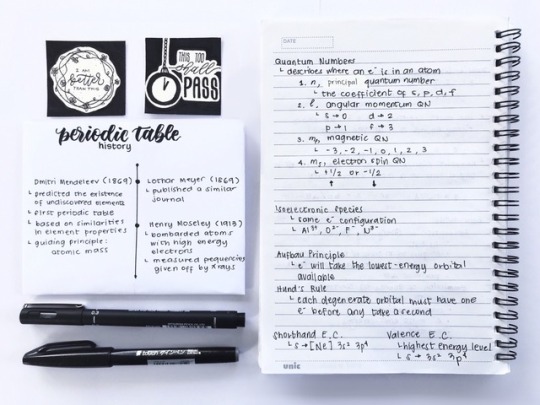 I AM
better
THAN THIS
THIS TOO
shall
PASS
periodic table
history
Dmitri Mendeleev (1869)
↳ predicted the existence
of undiscovered elements
↳ first periodic table
↳ based on similarities
in element properties
↳ guiding principle:
atomic mass
Lothar Meyer (1869)
↳ published a similar
journal
Henry Moseley (1913)
↳ bombarded atoms
with high energy
electrons
↳ measured frequencies
given off by x rays
DATE
Quantum Numbers
↳ describes where an e⁻ is in an atom
1. n, principal quantum number
↳ the coefficient of s, p, d, f
2. ℓ, angular momentum QN
↳ s → 0 d → 2
p → 1 f → 3
3. mℓ, magnetic QN
↳ -3, -2, -1, 0, 1, 2, 3
4. ms, electron spin QN
↳ +1/2 or -1/2
↑ ↓
Isoelectronic Species
↳ same e⁻ configuration
↳ Al³⁺, O²⁻, F⁻, N³⁻
Aufbau Principle
↳ e⁻ will take the lowest-energy orbital
available
Hund's Rule
↳ each degenerate orbital must have one
e⁻ before any take a second
Shorthand E.C.
↳ S → [Ne] 3s² 3p⁴
Valence E.C.
↳ highest energy level
↳ S → 3s² 3p⁴
unic